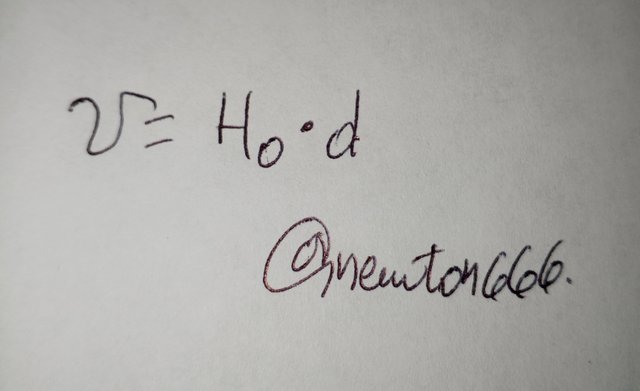 v = H₀ · d
@newton666.